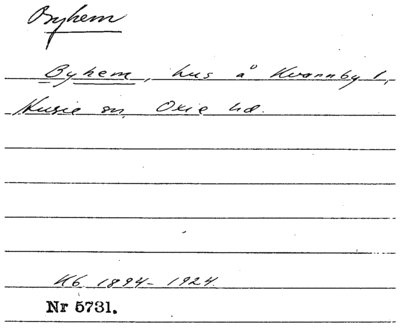 Byhem
Byhem, hus å Kvarnby 1,
Husie sn, Oxie hd.
Kb. 1894-1924.
Nr 5731.